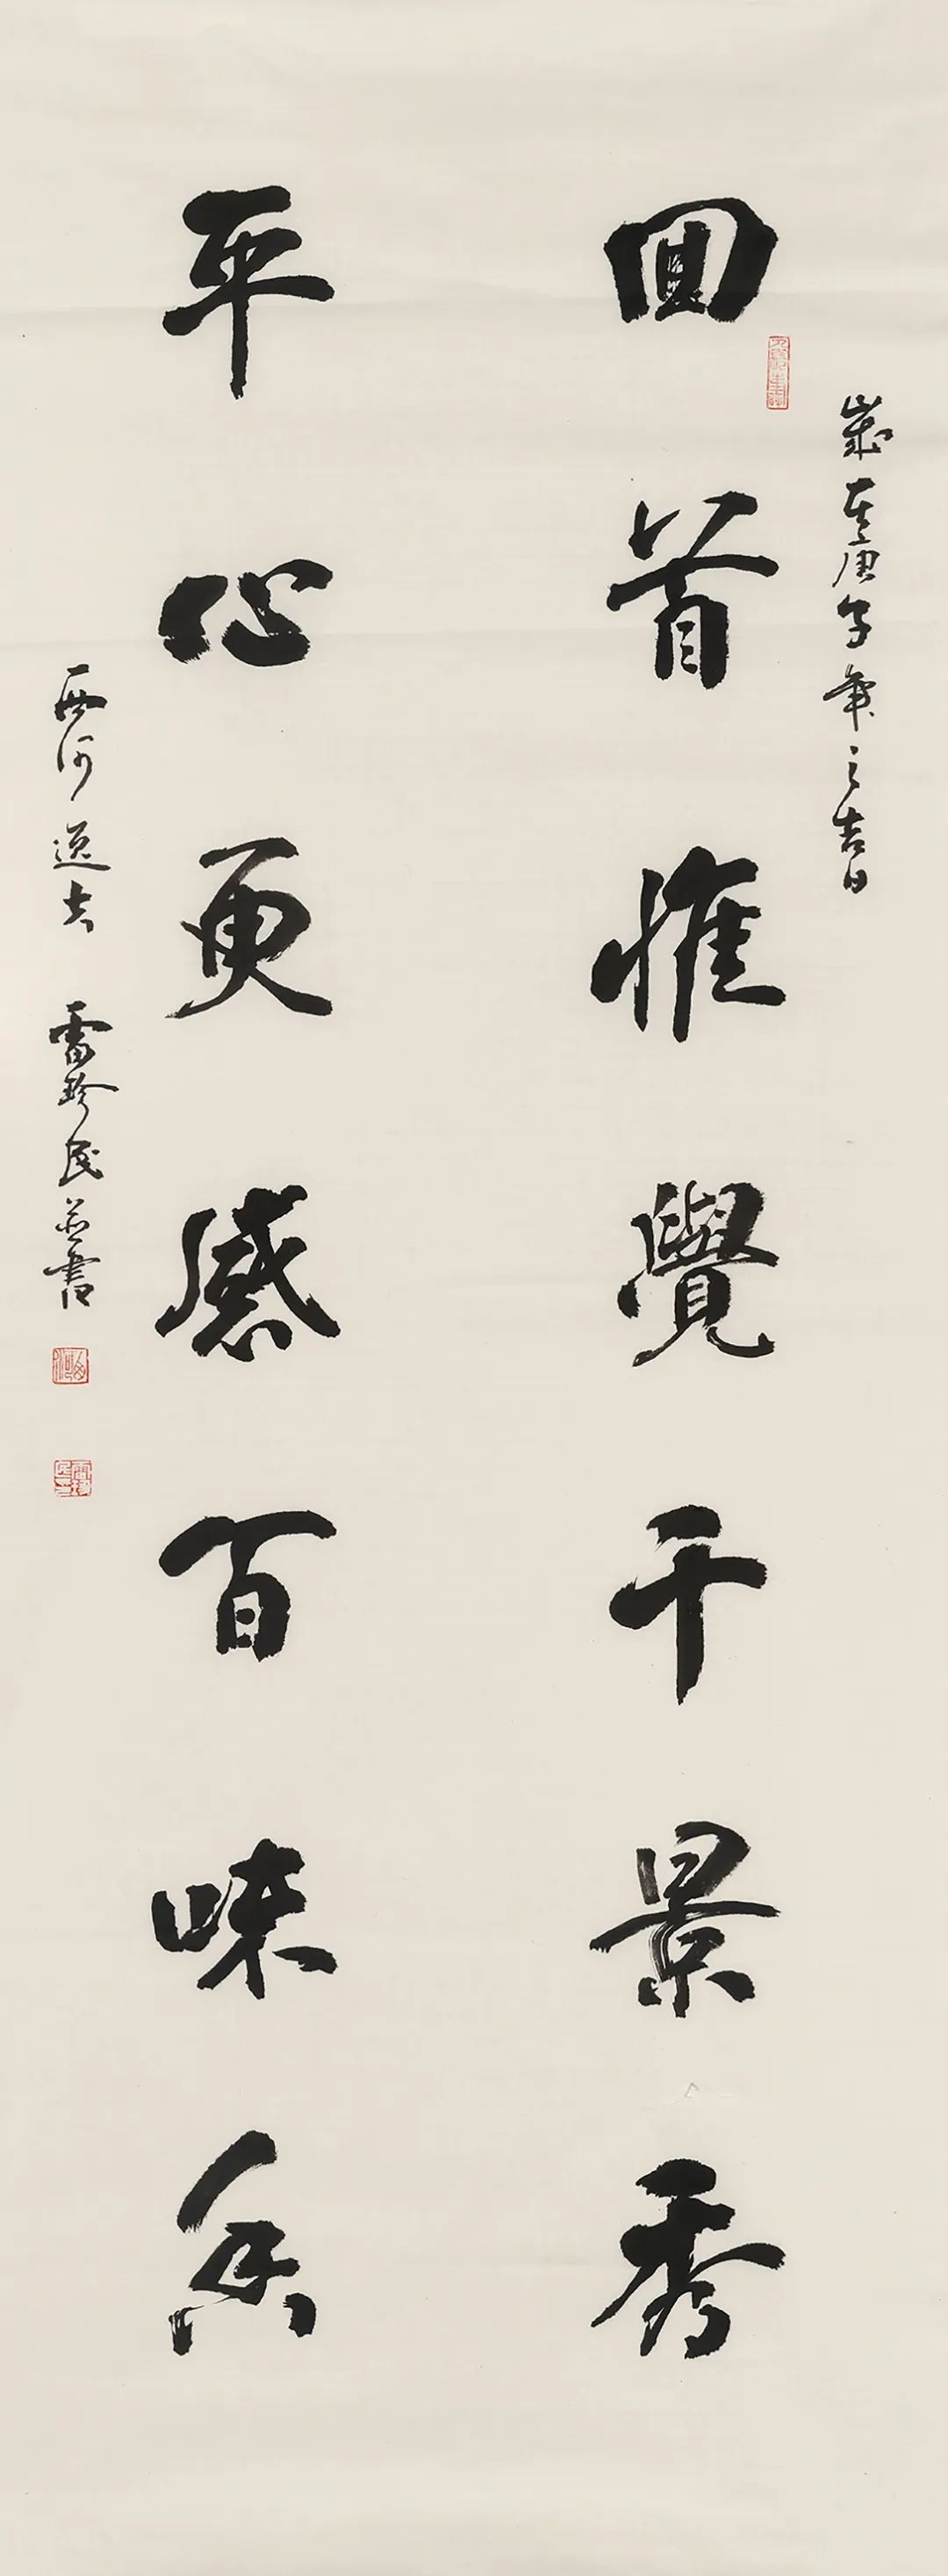 歲在庚子年之吉日
回首惟覺千景秀
平心更感百味余
西河逸士 雷珍民並書